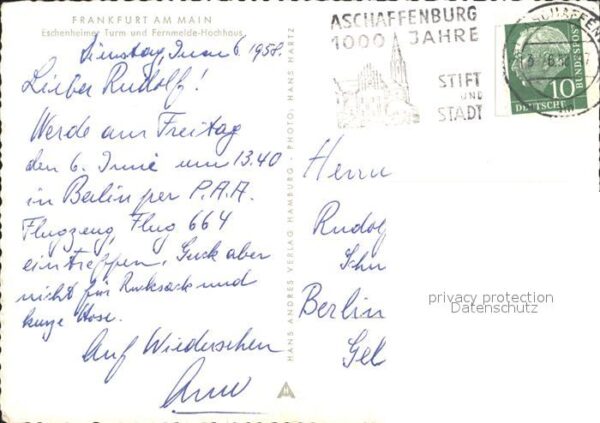 FRANKFURT AM MAIN
Eschenheimer Turm und Fernmelde-Hochhaus
Dienstag, 1958.
Lieber Rudolf!
Werde am Freitag
den 6. Juni um 13.40
in Berlin per P.A.A.
Flugzeug, Flug 664
eintreffen. Guck aber
nicht für Rucksack und
kurze Hose.
Auf Wiedersehen
HANS ANDRES VERLAG HAMBURG - PHOTO: HANS HARTZ
ASCHAFFENBURG
1000 JAHRE
STIFT
UND
STADT
ASCHAFFENBURG
10
DEUTSCHE BUNDESPOST
Herrn
Rudolf
Berlin
privacy protection
Datenschutz